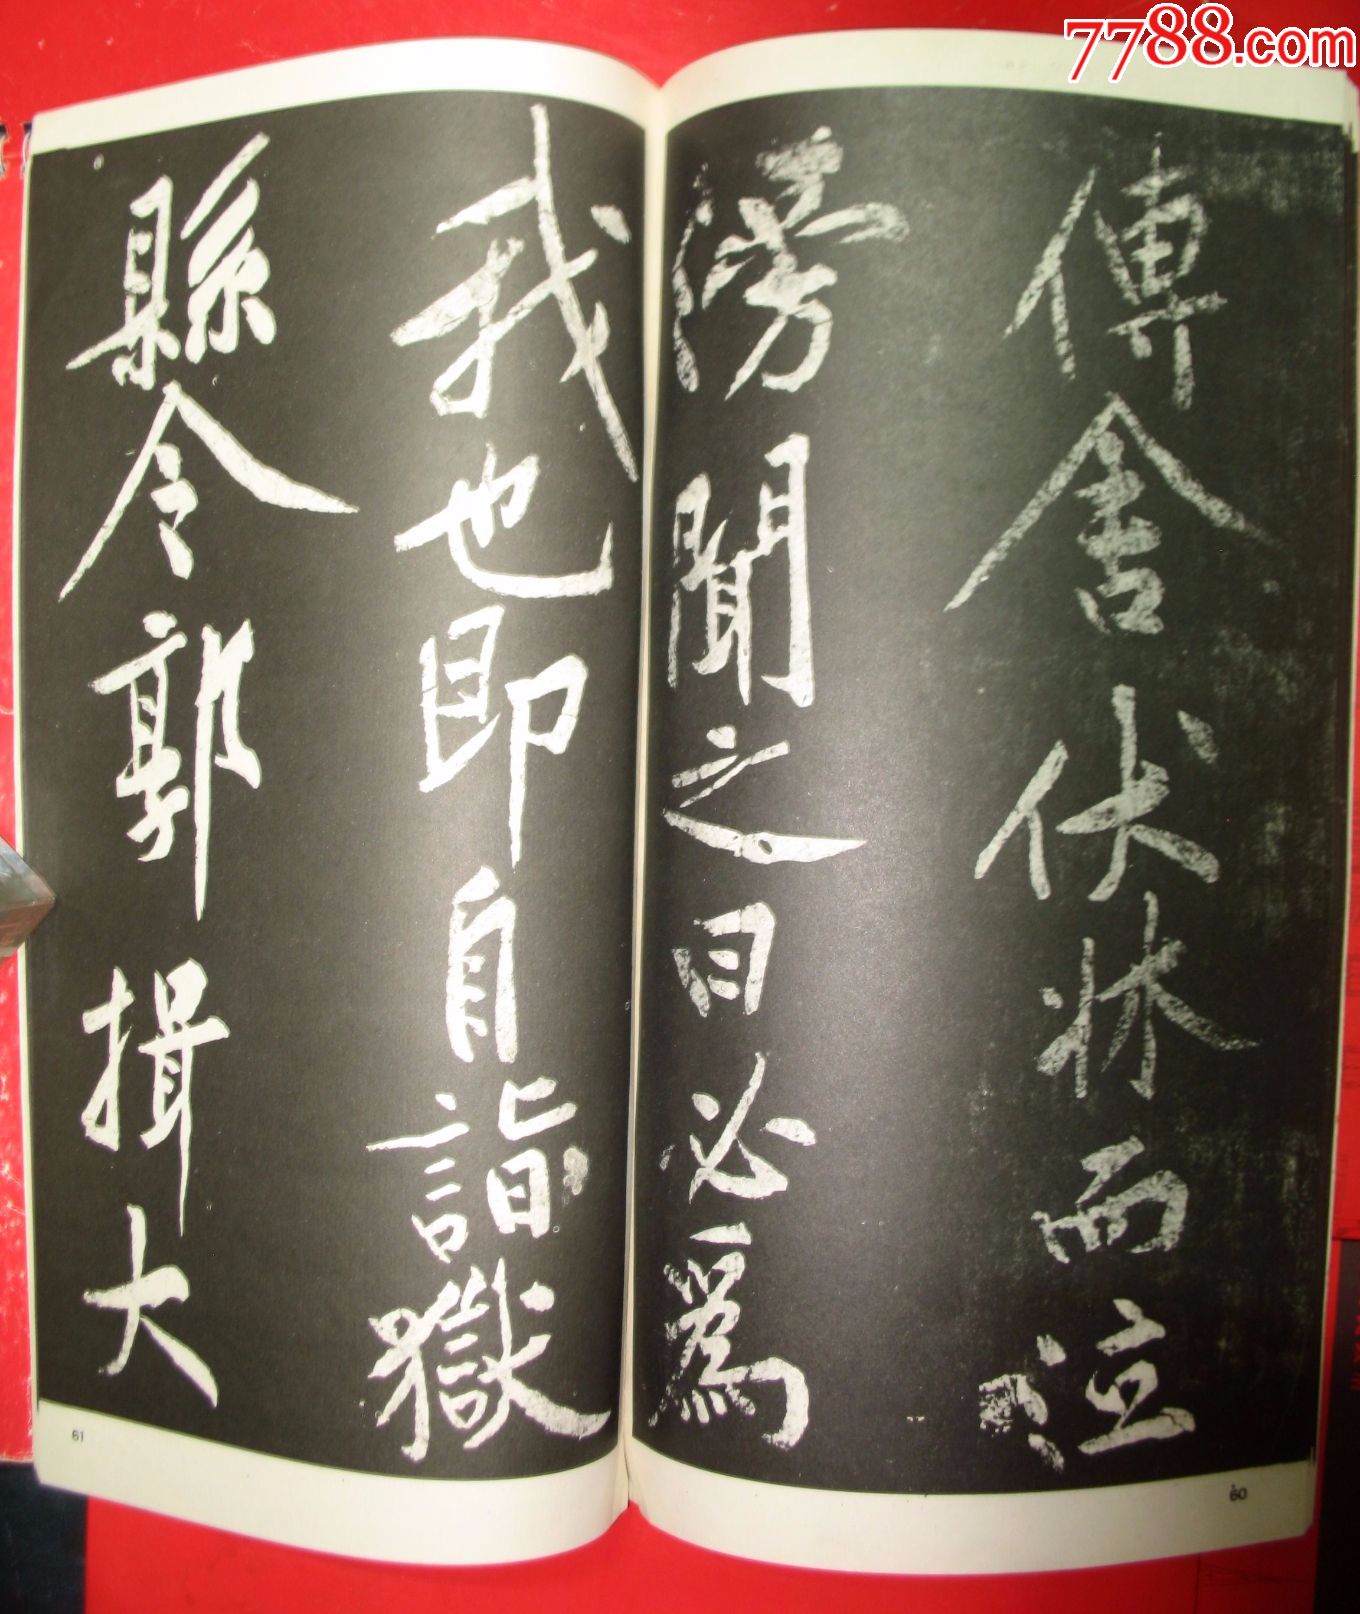 7788.com
傳舍伏牀而泣
滂聞之曰必為
我也即自詣獄
縣令郭揖大
60
61